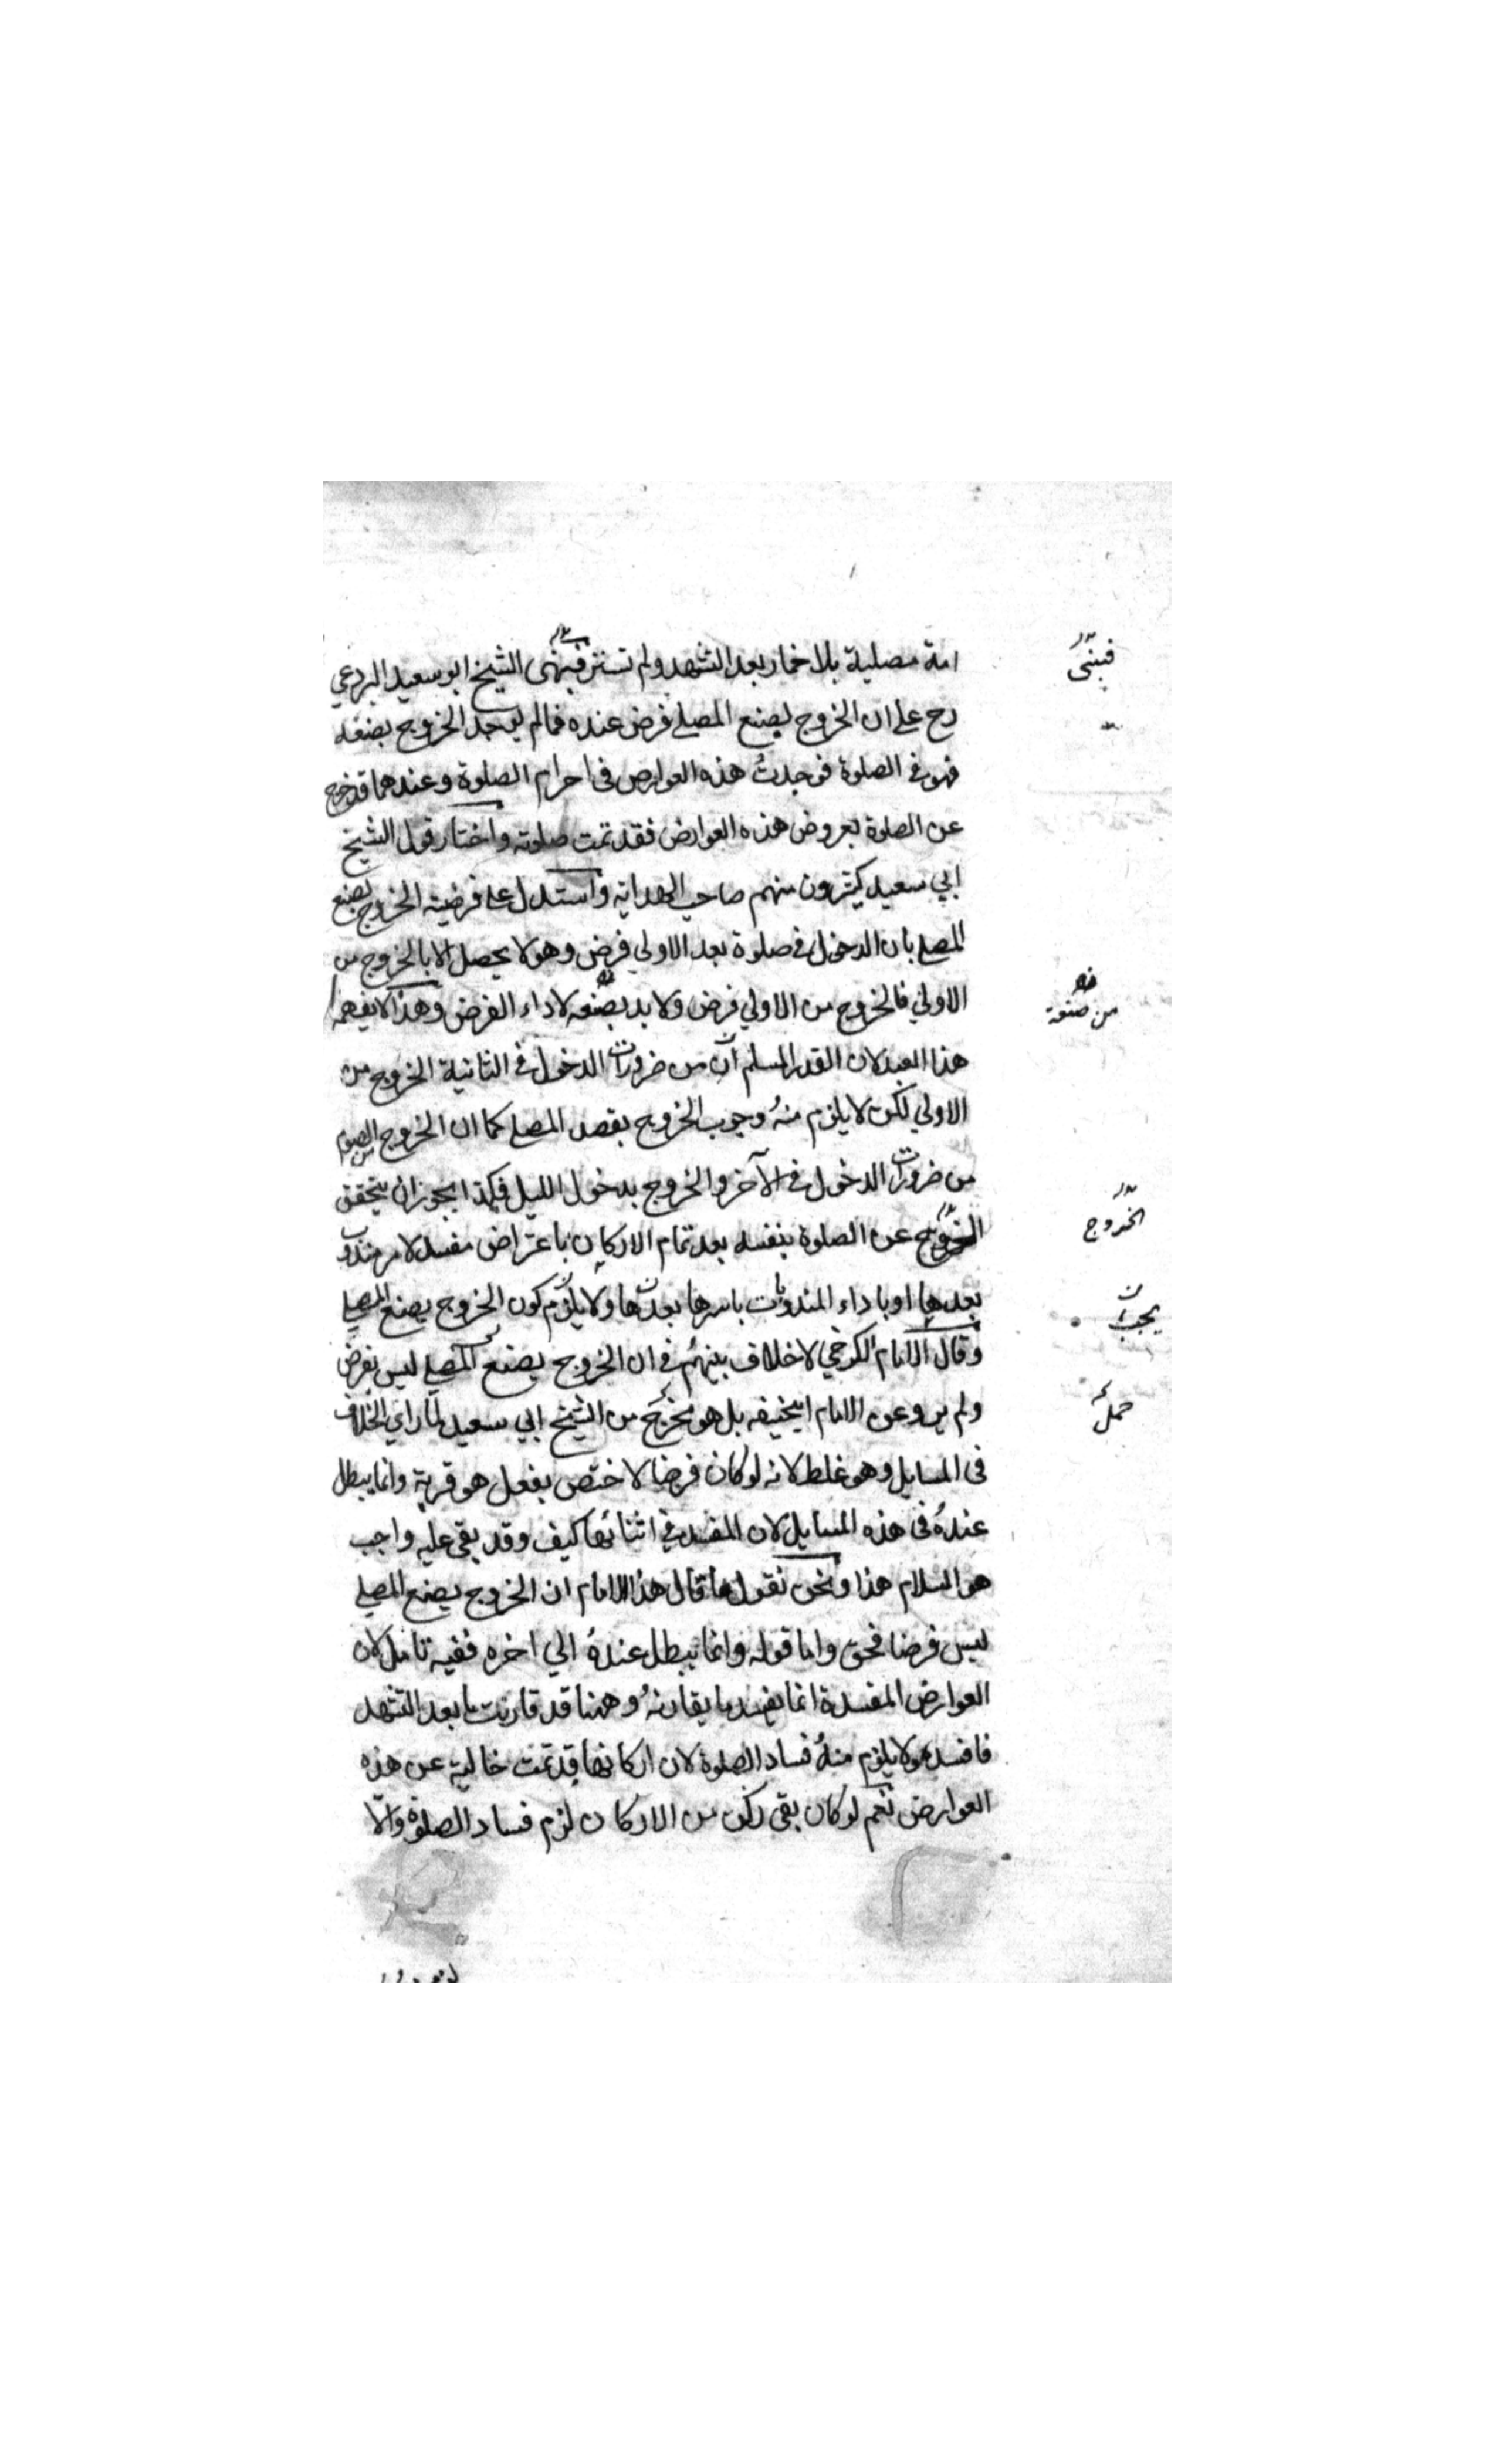 امة مصلية بلا خمار بعد التشهد ولم تستتر فبنى الشيخ ابو سعيد البردعي
رح على ان الخروج بصنع المصلى فرض عنده فما لم يوجد الخروج بصنعه
فهو فى الصلوة فوجدتُ هذه العوارض فى احرام الصلوة وعندهما قد خرج
عن الصلوة بعروض هذه العوارض فقد تمت صلوته واختار قول الشيخ
ابي سعيد كثيرون منهم صاحب الهداية واستدل على فرضية الخروج بصنع
المصلى بان الدخول فى صلوة بعد الاولي فرض وهو لا يحصل الا بالخروج من
الاولي فالخروج من الاولي فرض ولا بد بصنعه لاداء الفرض وهذا لا يفهمه
هذا العبد لان القدر المسلم ان من ضرورات الدخول فى الثانية الخروج من
الاولي لكن لا يلزم منهُ وجوب الخروج بقصد المصلى كما ان الخروج من الصوم
من ضرورات الدخول فى الآخر والخروج بدخول الليل فكذا يجوز ان يتحقق
الخروج عن الصلوة بنفسه بعد تمام الاركان باعتراض مفسد لامر مندوب
بعدها او باداء المندوبات باسرها بعدها ولا يلزم كون الخروج بصنع المصلي
وقال الامام الكرخي لا خلاف بينهُم فى ان الخروج بصنع المصلي ليس بفرض
ولم يرو عن الامام ابيحنيفه بل هو مخرج من الشيخ ابي سعيد لما راي الخلاف
فى المسايل وهو غلط لانه لو كان فرضا لاختص بفعل هو قربة وانما يبطل
عندهُ فى هذه المسايل لان المفسد فى اثنائها كيف وقد بقى عليه واجب
هو السلام هذا ونحن نقول ما قال هذا الامام ان الخروج بصنع المصلي
ليس فرضا فحق واما قوله وانما يبطل عندهُ الي اخره ففيه تامل لان
العوارض المفسدة انما يفسد ما يقارنهُ وههنا قد قارنت ما بعد التشهد
فافسد هو لا يلزم منهُ فساد الصلوة لان اركانها قد تمت خالية عن هذه
العوارض نعم لو كان بقى ركن من الاركان لزم فساد الصلوة والا
فبنى
من صنعة
الخروج
يجب
حمل